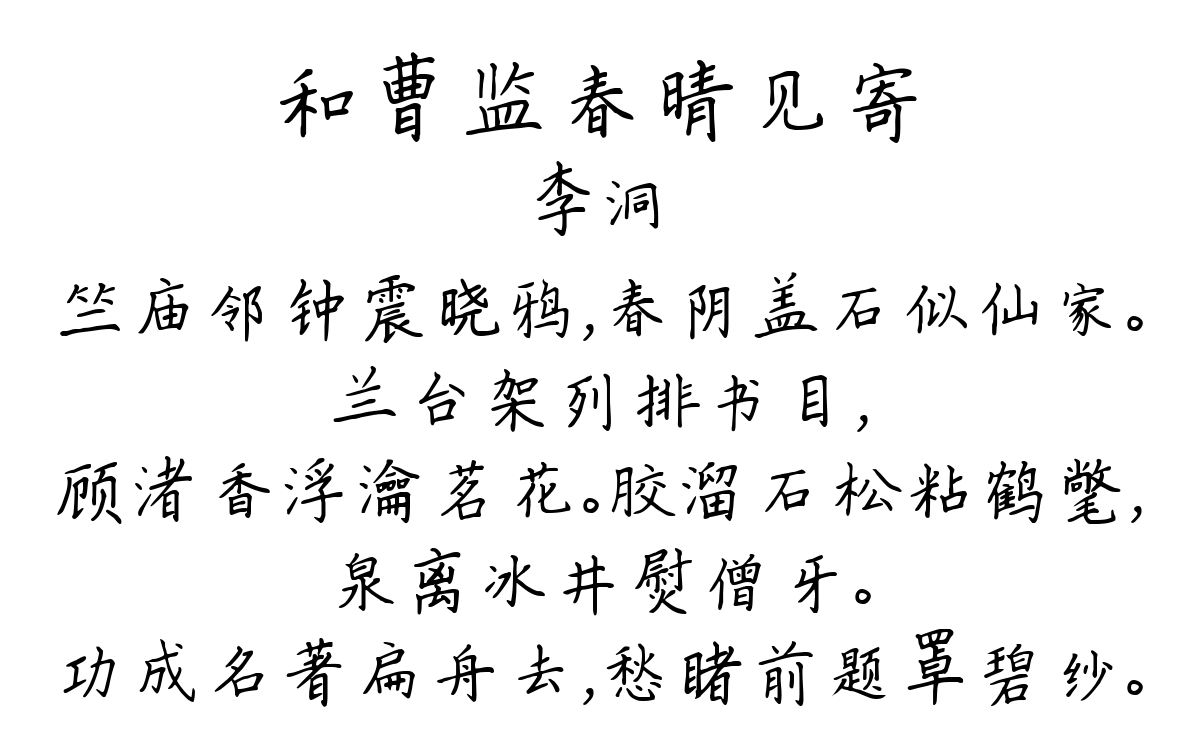 和曹监春晴见寄
李洞
竺庙邻钟震晓鸦,春阴盖石似仙家。
兰台架列排书目,
顾渚香浮瀹茗花。胶溜石松粘鹤氅,
泉离冰井熨僧牙。
功成名著扁舟去,愁睹前题罩碧纱。